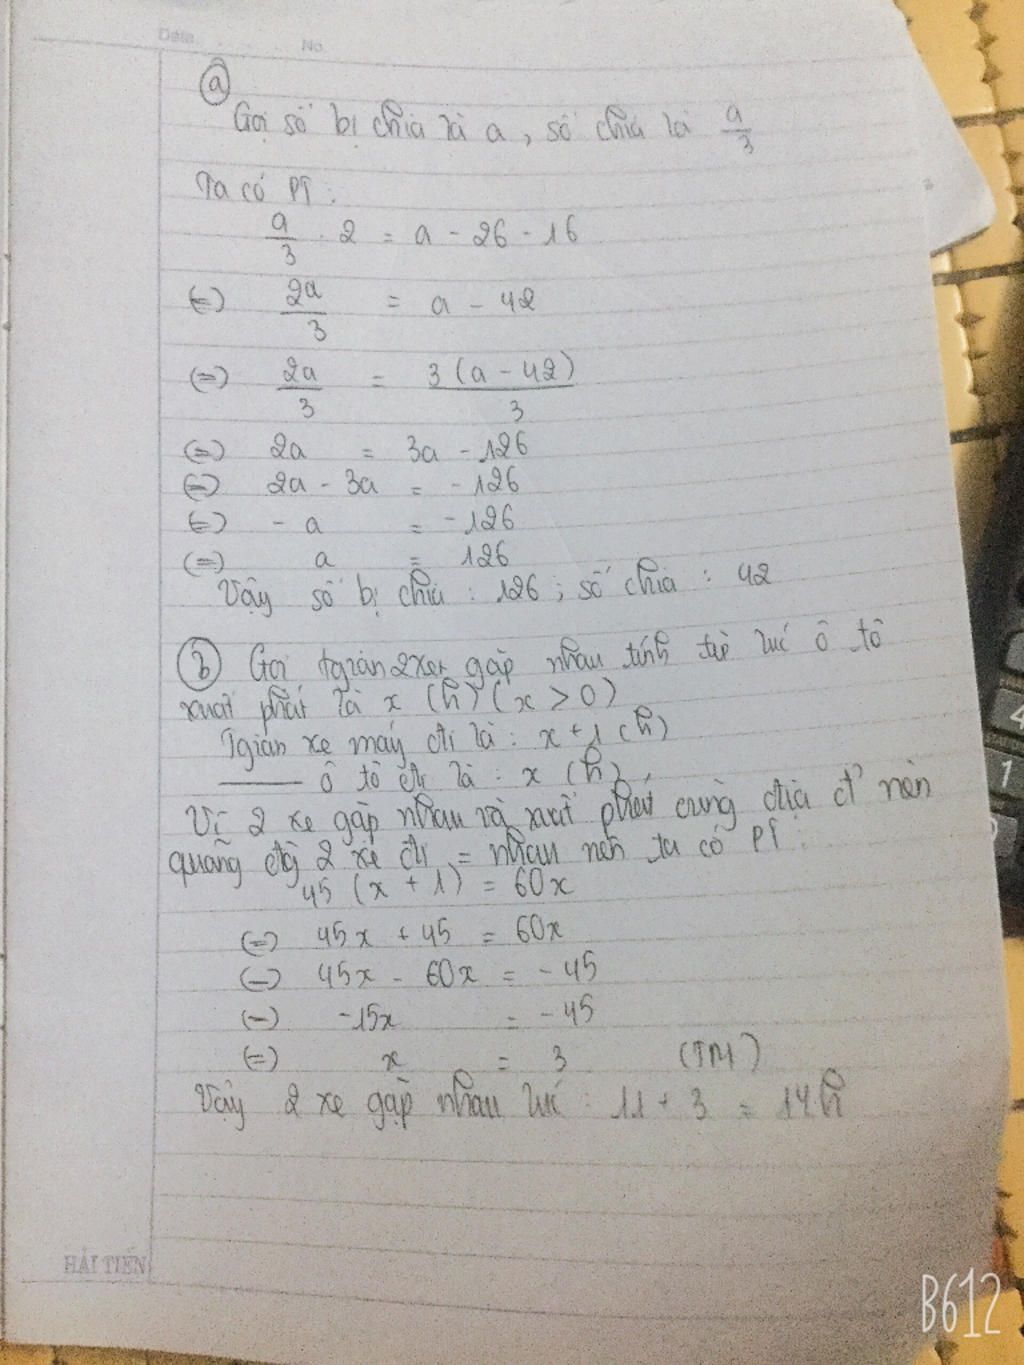 Date No
ⓐ
Gọi số bị chia là a, số chia là a/3
Ta có PT:
a/3 . 2 = a - 26 - 16
(=) 2a/3 = a - 42
(=) 2a/3 = 3(a - 42)/3
(=) 2a = 3a - 126
(=) 2a - 3a = - 126
(=) - a = - 126
(=) a = 126
Vậy số bị chia : 126 ; số chia : 42
ⓑ Gọi tgian 2 xe gặp nhau tính từ lúc ô tô
xuất phát là x (h) (x > 0)
Tgian xe máy đi là : x + 1 (h)
——— ô tô đi là : x (h)
Vì 2 xe gặp nhau và xuất phát cùng địa đ' nên
quãng đg 2 xe đi = nhau nên ta có PT :
45 (x + 1) = 60x
(=) 45x + 45 = 60x
(=) 45x - 60x = - 45
(=) -15x = - 45
(=) x = 3 (TM)
Vậy 2 xe gặp nhau lúc : 11 + 3 = 14h
HẢI TIẾN
B612